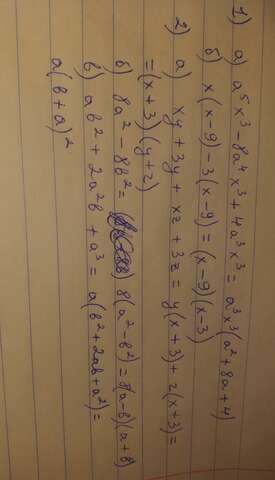 1) а) a⁵x³-8a⁴x³+4a³x³= a³x³(a²+8a+4)
б) x(x-9)-3(x-9)=(x-9)(x-3)
2) а) xy+3y+xz+3z=y(x+3)+z(x+3)=
=(x+3)(y+z)
б) 8a²-8b²= 8(a²-b²)=8(a-b)(a+b)
в) ab²+2a²b+a³=a(b²+2ab+a²)=
a(b+a)²